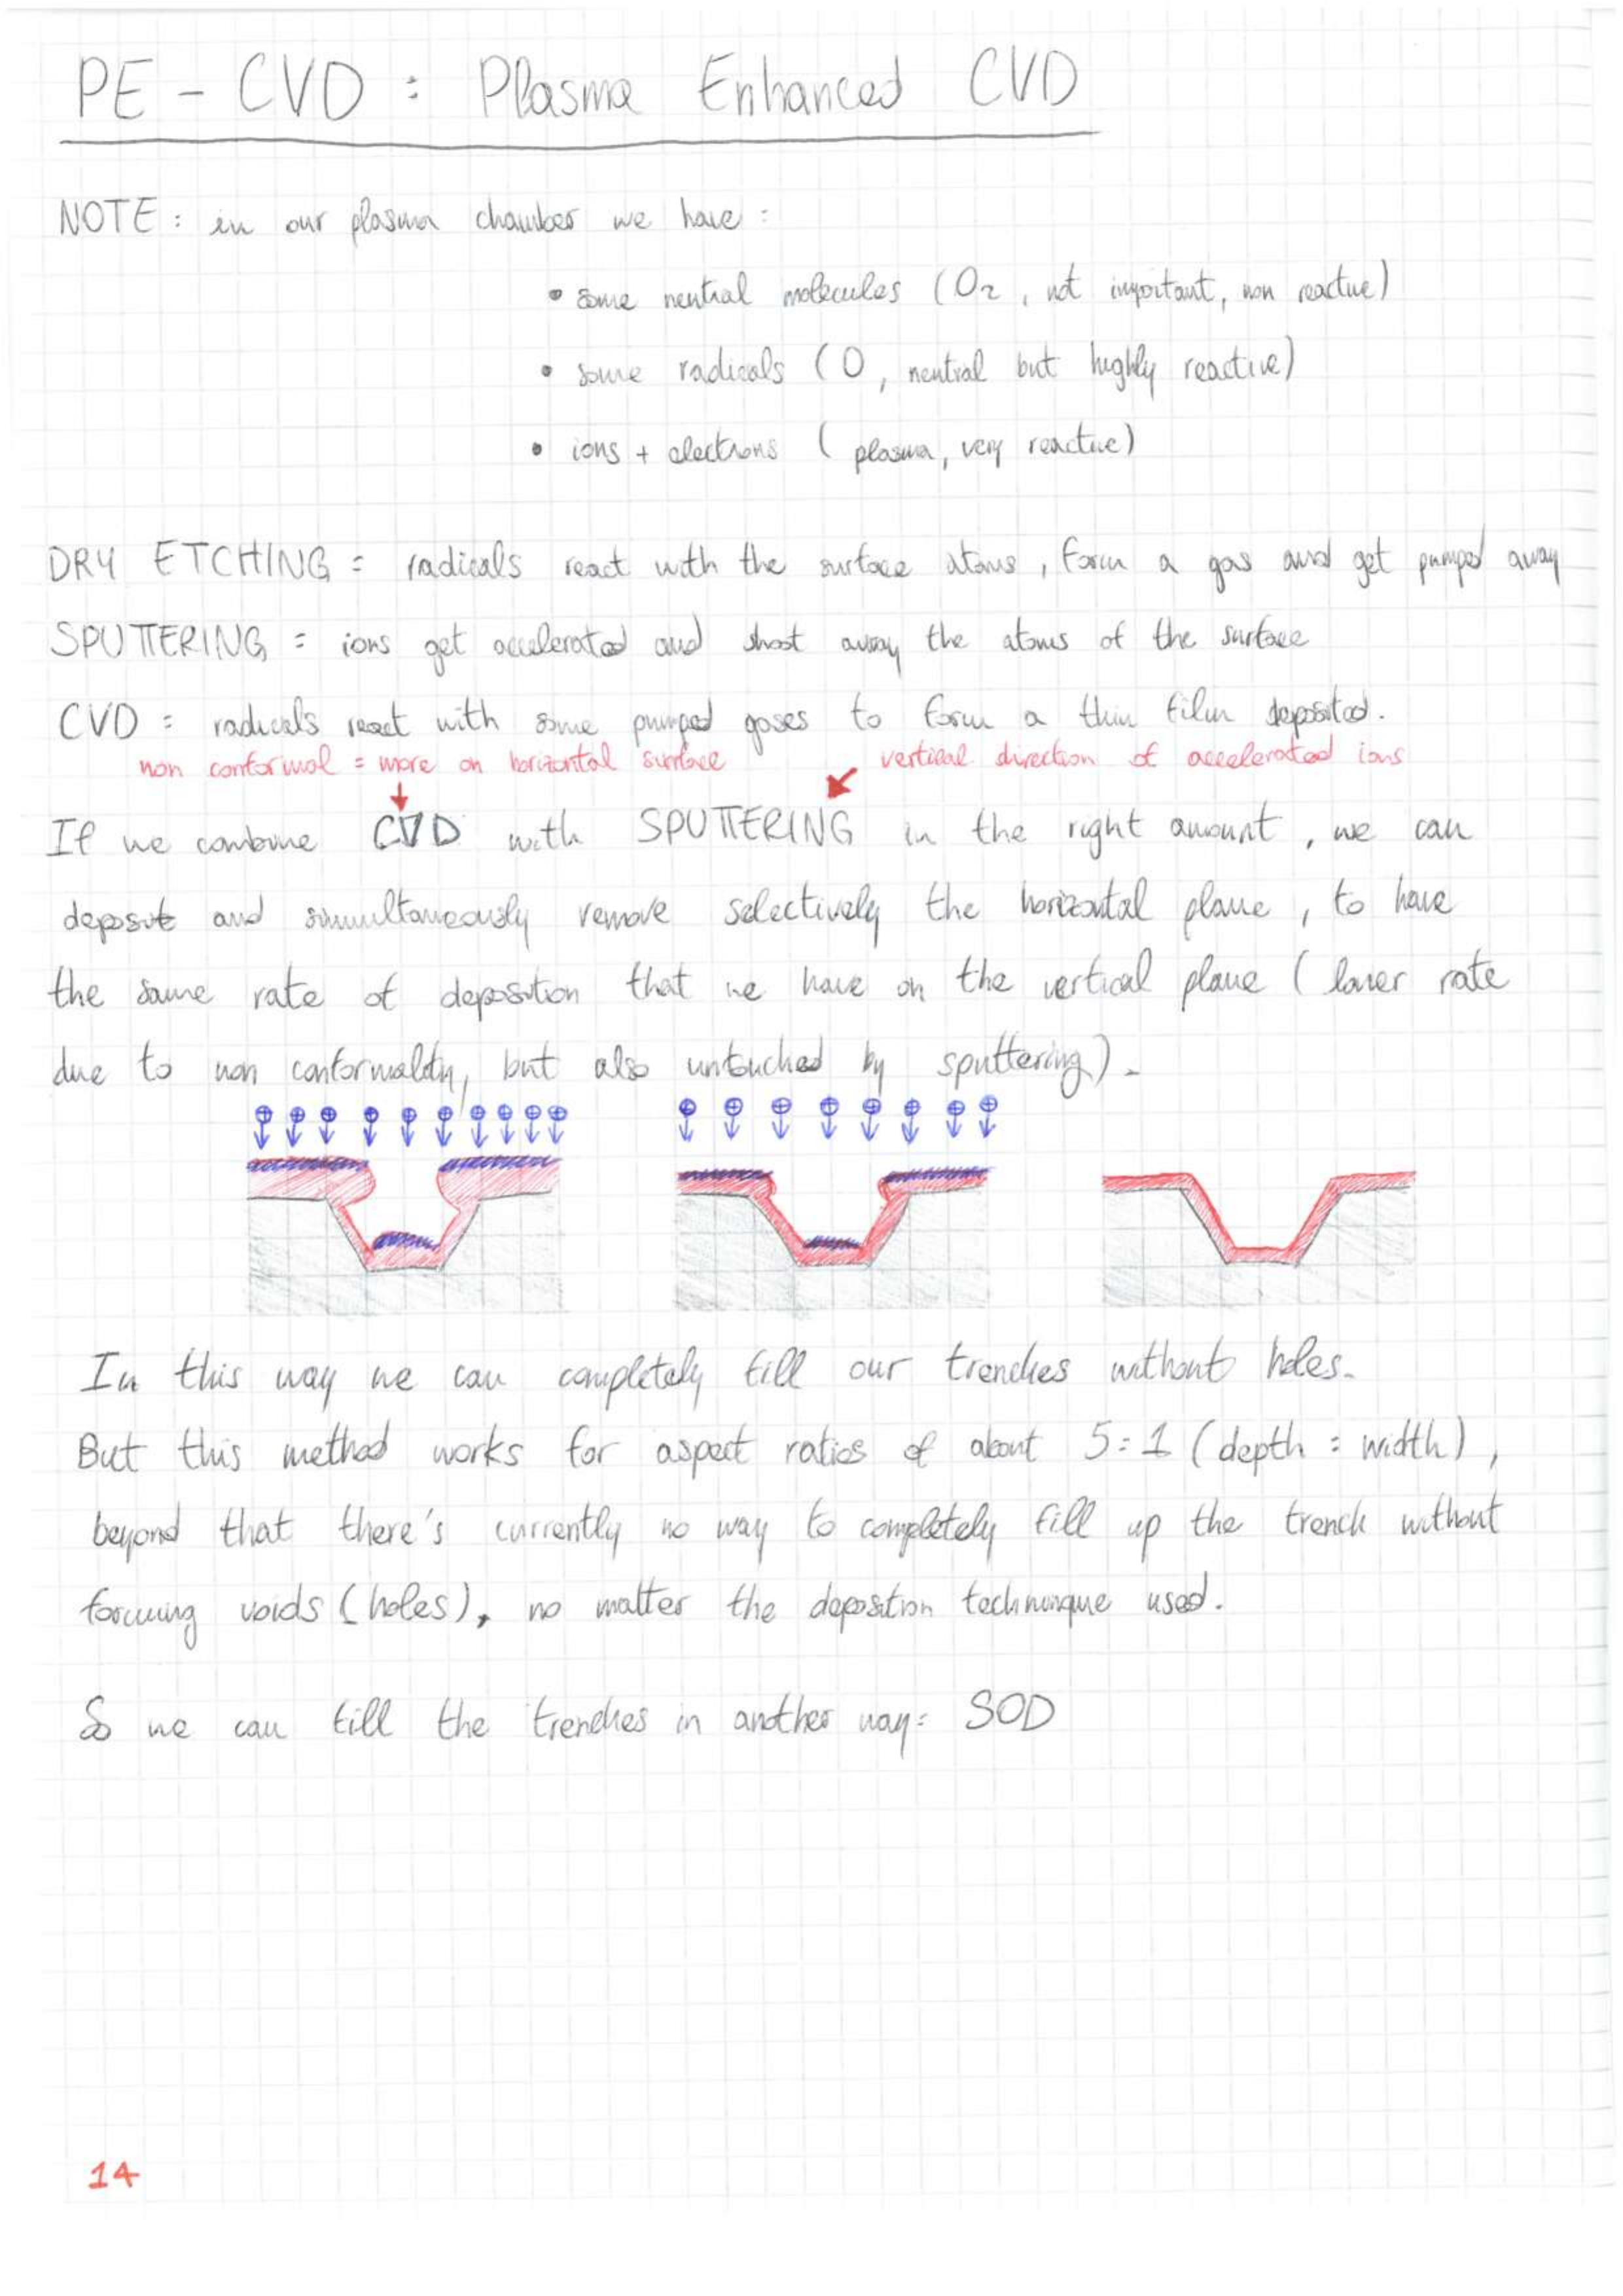 PE - CVD : Plasma Enhanced CVD
NOTE : in our plasma chamber we have :
• some neutral molecules (O2, not important, non reactive)
• some radicals (O, neutral but highly reactive)
• ions + electrons (plasma, very reactive)
DRY ETCHING = radicals react with the surface atoms, form a gas and get pumped away
SPUTTERING = ions get accelerated and shoot away the atoms of the surface
CVD = radicals react with some pumped gases to form a thin film deposited.
non conformal = more on horizontal surface vertical direction of accelerated ions
If we combine CVD with SPUTTERING in the right amount, we can
deposit and simultaneously remove selectively the horizontal plane, to have
the same rate of deposition that we have on the vertical plane (lower rate
due to non conformality, but also untouched by sputtering).
In this way we can completely fill our trenches without holes.
But this method works for aspect ratios of about 5:1 (depth : width),
beyond that there's currently no way to completely fill up the trench without
forming voids (holes), no matter the deposition techninque used.
So we can fill the trenches in another way: SOD
14